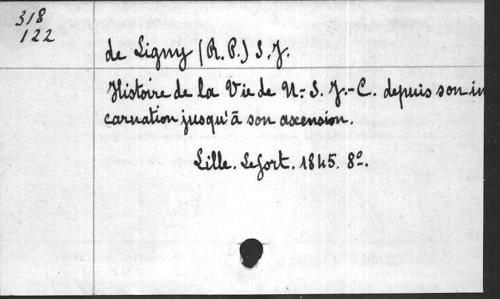 318
122
de Ligny (R. P.) S. J.
Histoire de la Vie de N.-S. J.-C. depuis son in
carnation jusqu'à son ascension.
Lille. Lefort. 1845. 8º.